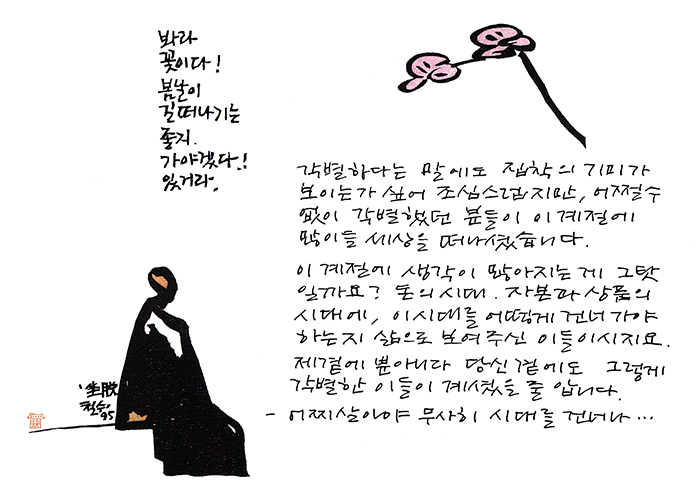 봐라
꽃이다!
봄날이
길떠나기는
좋지.
가야겠다.!
있거라.
각별하다는 말에도 집착의 기미가
보이는가 싶어 조심스럽지만, 어쩔수
없이 각별했던 분들이 이 계절에
많이들 세상을 떠나셨습니다.
이 계절에 생각이 많아지는게 그탓
일까요? 돈의 시대. 자본과 상품의
시대에, 이시대를 어떻게 건너가야
하는지 삶으로 보여주신 이들이시지요.
제곁에 뿐아니라 당신 곁에도 그렇게
각별한 이들이 계셨을 줄 압니다.
- 어찌살아야 무사히 시대를 건너나…
'坐脫
철수
95